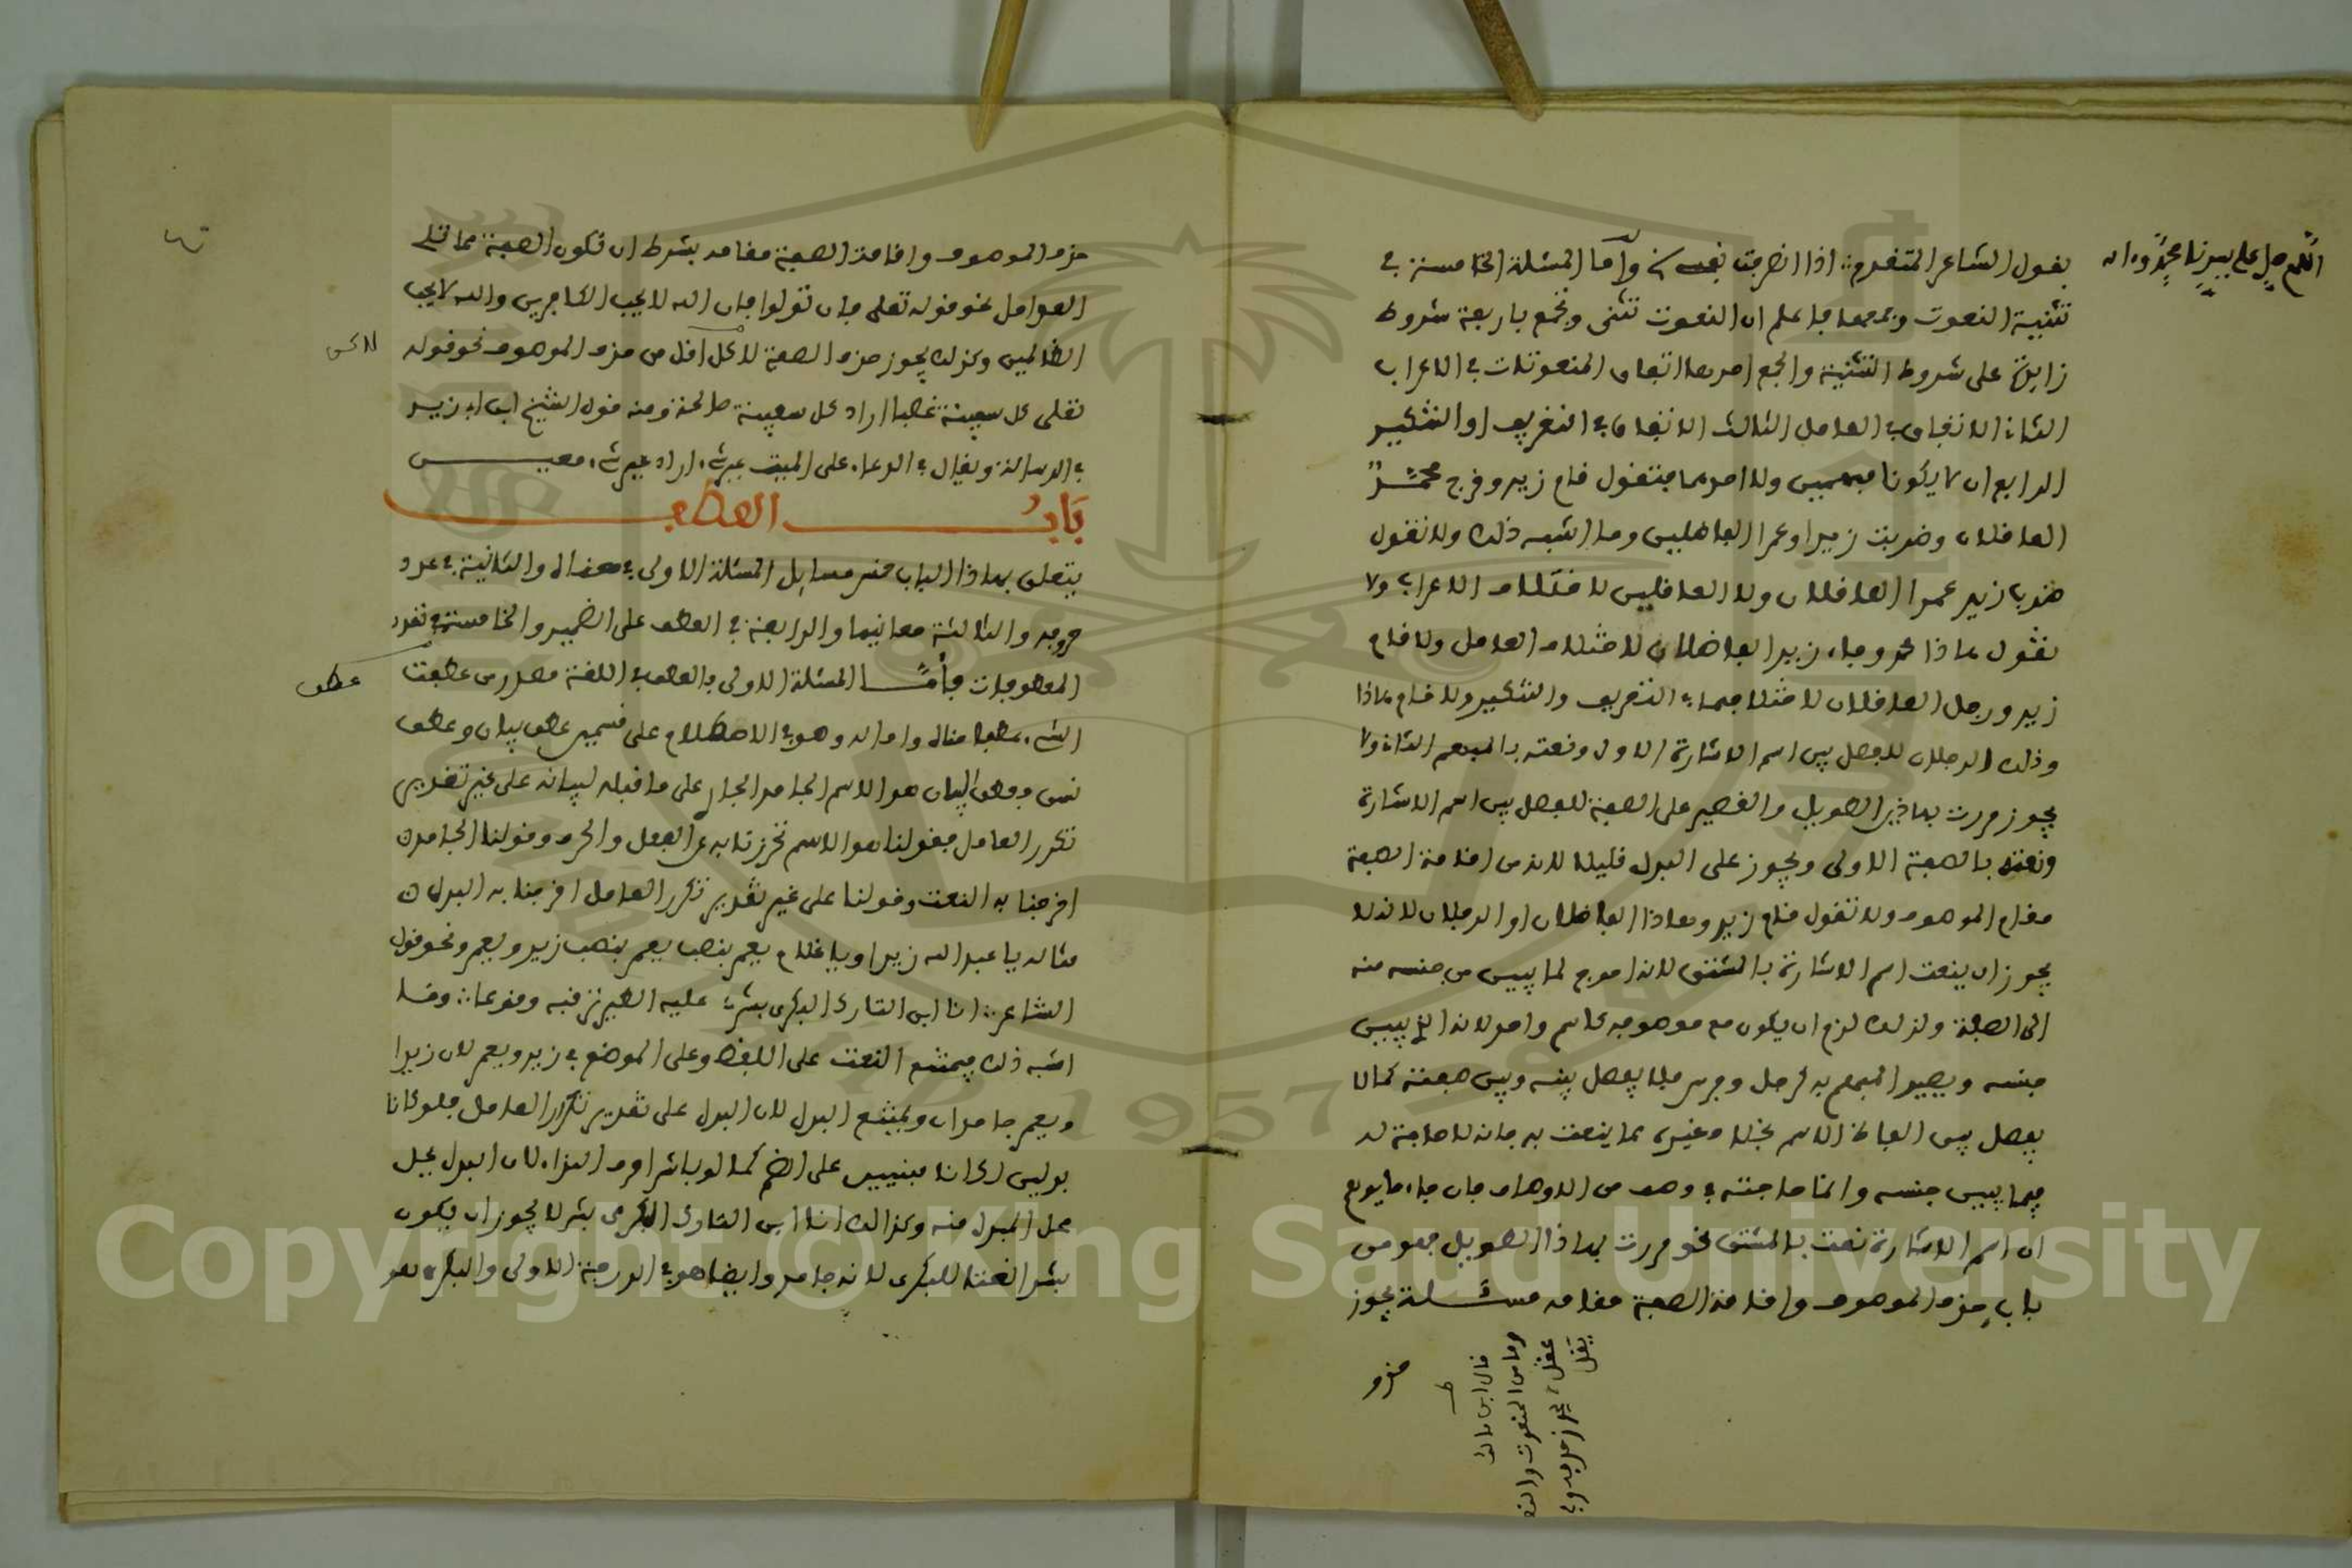 اللهم صل على سيدنا محمد وءاله
يقول الشاعر المتقدم اذا انصرفت نفسي وأما المسئلة الخامسة في
تثنية النعوت وجمعها فاعلم ان النعوت تثنى وتجمع باربعة شروط
زايدة على شروط التثنية والجمع احدها اتفاق المنعوتات في الاعراب
الثاني الاتفاق في العامل الثالث الاتفاق في التعريف او التنكير
الرابع ان لا يكونا مبهمين ولا احدهما فتقول قام زيد وخرج محمد
العاقلان وضربت زيدا وعمرا الفاضليين وما اشبه ذلك ولا تقول
ضرب زيد عمرا العاقلان ولا العاقلين لاختلاف الاعراب ولا
تقول هاذا عمرو وجاء زيد الفاضلان لاختلاف العامل ولا قام
زيد ورجل العاقلان لاختلافهما في التعريف والتنكير ولا قام هاذا
وذلك الرجلان للفصل بين اسم الاشارة الاول ونعته بالمبهم الثاني ولا
يجوز مررت بهاذين الطويل والقصير على الصفة للفصل بين اسم الاشارة
ونعته بالصفة الاولى ويجوز على البدل قليلا لانه من اقامة الصفة
مقام الموصوف ولا تقول قام زيد وهاذا الفاضلان او الرجلان لانه لا
يجوز ان ينعت اسم الاشارة بالمشتق لانه احوج لما يبين من جنسه منه
الى الصفة ولذلك لزم ان يكون مع موصوفه كاسم واحد لانه الذي يبين
جنسه ويصير المبهم به كرجل وفرس فلا يفصل بينه وبين صفته كما لا
يفصل بين الفاظ الاسم بخلاف غيره مما ينعت به فانه لا حاجة له
فيما يبين جنسه وانما حاجته في وصف من الاوصاف فان جاء ما يوهم
ان اسم الاشارة نعت بالمشتق نحو مررت بهاذا الطويل فهو من
باب حذف الموصوف واقامة الصفة مقامه مسئلة يجوز
حذف
قال ابن مالك
وما من المنعوت والنعت
عقل يجوز حذفه وفي
يقل
حذف الموصوف واقامة الصفة مقامه بشرط ان تكون الصفة مما تلي
العوامل نحو قوله تعلى فان تولوا فان الله لا يحب الكافرين والله لا يحب
الظالمين وكذلك يجوز حذف الصفة لاكن اقل من حذف الموصوف نحو قوله
لاكن
تعلى كل سفينة غصبا اراد كل سفينة صالحة ومنه قول الشيخ ابن ابي زيد
في الرسالة ويقال في الدعاء على الميت غير شيء اراد غير شيء معين
بَابُ العطف
يتعلق بهاذا الباب خمس مسايل المسئلة الاولى في معناه والثانية في عدد
حروفه والثالثة معانيها والرابعة في العطف على الضمير والخامسة في تعدد
المعطوفات فأمَّا المسئلة الاولى فالعطف في اللغة مصدر من عطفت
عطف
الشيء عطفا مثاله واماله وهو في الاصطلاح على قسمين عطف بيان وعطف
نسق وعطف البيان هو الاسم الجامد الجار على ما قبله لبيانه على غير تقدير
تكرر العامل فقولنا هو الاسم تحرزنا به عن الفعل والحرف وقولنا الجامد
اخرجنا به النعت وقولنا على غير تقدير تكرر العامل اخرجنا به البدل
مثاله يا عبد الله زيدا ويا غلام يعمر بنصب يعمر بنصب زيد ويعمر ونحو قول
الشاعر انا ابن التارك البكري بشر عليه الطير ترقبه وقوعا وما
اشبه ذلك فيمتنع النعت على اللفظ وعلى الموضع في زيد ويعمر لان زيدا
ويعمر جامدان ويمتنع البدل لان البدل على تقدير تكرر العامل فلو كانا
بدلين لكانا مبنيين على الضم كما لو باشرا حرف النداء لان البدل يحل
محل المبدل منه وكذالك انا ابن التارك البكري بشر لا يجوز ان يكون
بشر نعتا للبكري لانه جامد وايضا هو في الدرجة الاولى والبكري هو
Copyright © King Saud University
1957